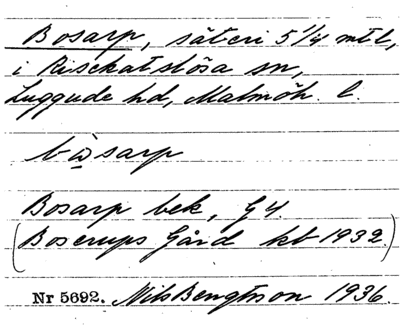 Bosarp, säteri 5 1/4 mtl,
i Risekatslösa sn,
Luggude hd, Malmöh. l.
bo̠sarp
Bosarp bek, G4
(Boserups Gård kb 1932.)
Nr 5692. Nils Bengtsson 1936.